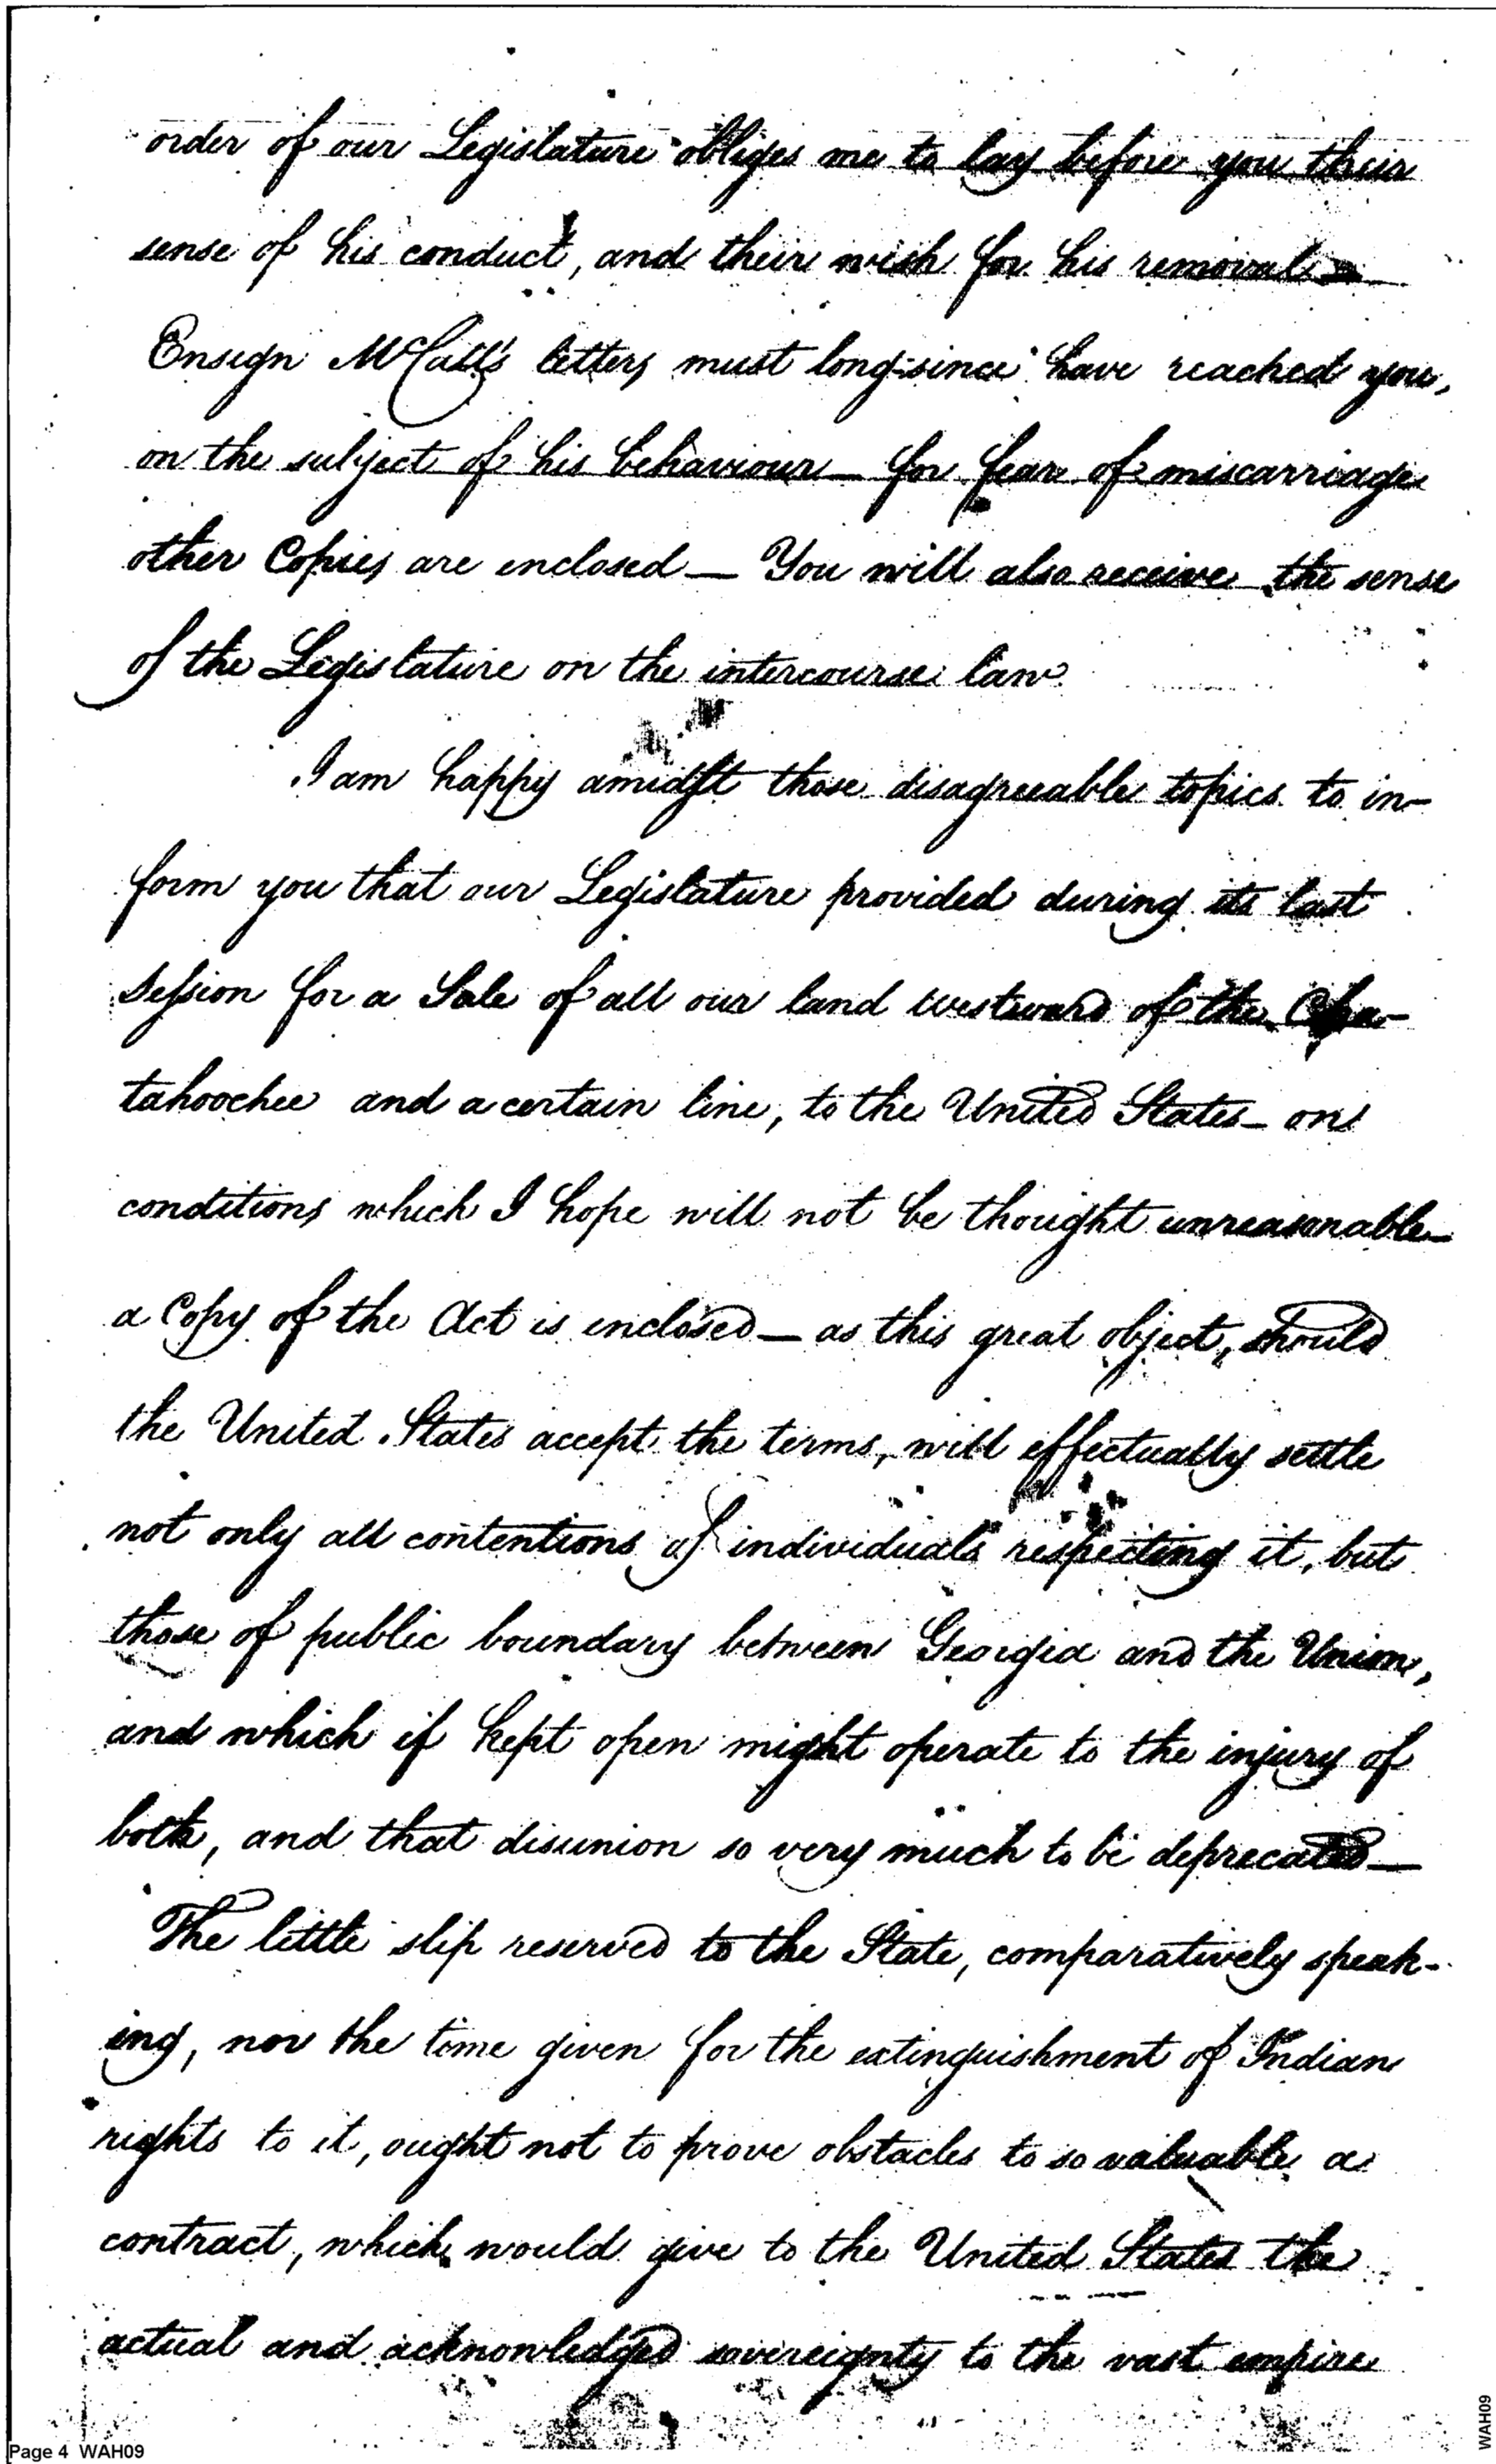 order of our Legislature obliges me to lay before you their
sense of his conduct, and their wish for his removal —
Ensign McCall's letters must long since have reached you,
on the subject of his behaviour — for fear of miscarriage
other Copies are enclosed — You will also receive the sense
of the Legislature on the intercourse law.
I am happy amidst those disagreeable topics to in-
form you that our Legislature provided during its last
Session for a Sale of all our land westward of the Cha-
tahoochee and a certain line, to the United States — on
conditions which I hope will not be thought unreasonable —
a Copy of the Act is enclosed — as this great object, should
the United States accept the terms, will effectually settle
not only all contentions of individuals respecting it, but
those of public boundary between Georgia and the Union,
and which if kept open might operate to the injury of
both, and that disunion so very much to be deprecated —
The little slip reserved to the State, comparatively speak-
ing, nor the time given for the extinguishment of Indian
rights to it, ought not to prove obstacles to so valuable a
contract, which would give to the United States the
actual and acknowledged sovereignty to the vast empire
Page 4 WAH09
WAH09